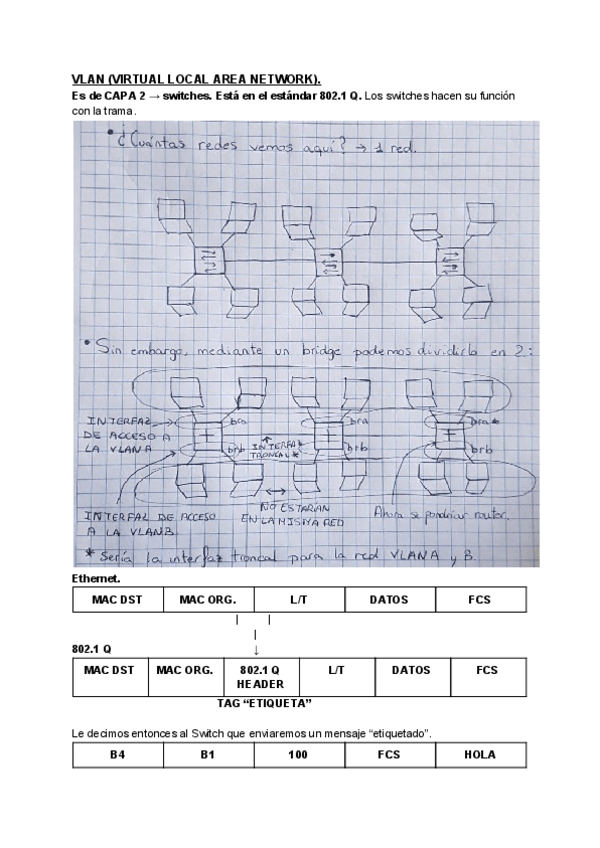 VLAN (VIRTUAL LOCAL AREA NETWORK).
Es de CAPA 2 → switches. Está en el estándar 802.1 Q. Los switches hacen su función
con la trama.
• ¿Cuántas redes vemos aquí? → 1 red.
• Sin embargo, mediante un bridge podemos dividirla en 2:
INTERFAZ
DE ACCESO A
LA VLAN A
bra
brb
INTERFAZ
TRONCAL *
bra
brb
bra *
brb
INTERFAZ DE ACCESO
A LA VLAN B
NO ESTARÍAN
EN LA MISMA RED
Ahora se pondrían router.
* Sería la interfaz troncal para la red VLAN A y B.
Ethernet.
MAC DST MAC ORG. L/T DATOS FCS
802.1 Q
MAC DST MAC ORG. 802.1 Q L/T DATOS FCS
HEADER
TAG “ETIQUETA”
Le decimos entonces al Switch que enviaremos un mensaje “etiquetado”.
B4 B1 100 FCS HOLA